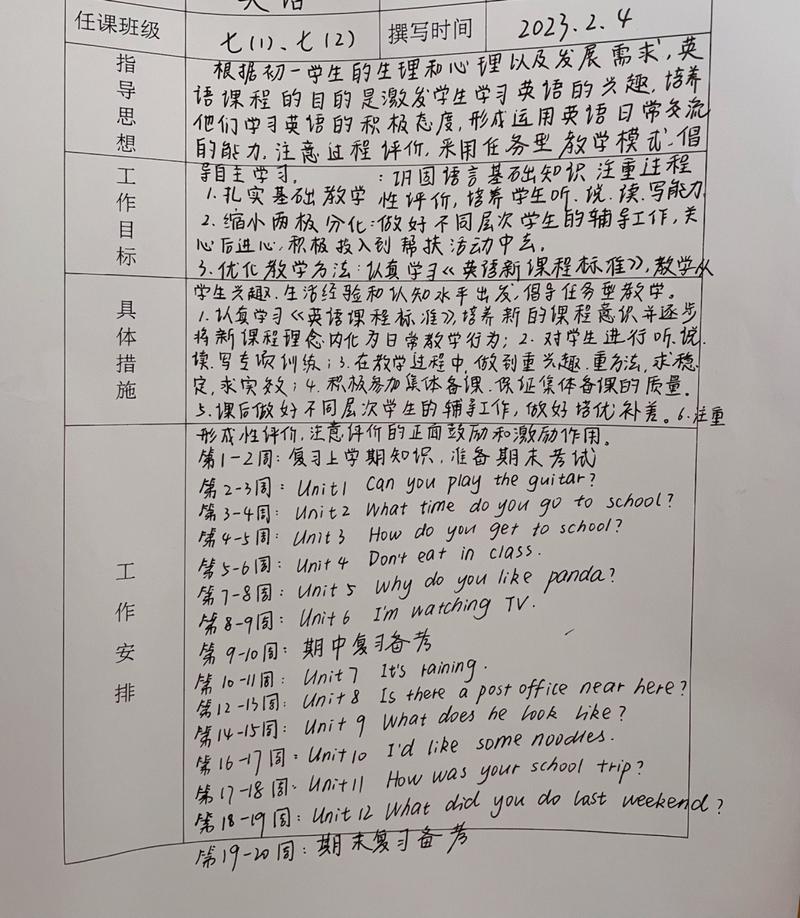 英语
任课班级 七(1)、七(2) 撰写时间 2023.2.4
指导思想
根据初一学生的生理和心理以及发展需求,英
语课程的目的是激发学生学习英语的兴趣,培养
他们学习英语的积极态度,形成运用英语日常交流
的能力,注意过程评价,采用任务型教学模式,倡
导自主学习。
工作目标
:巩固语言基础知识 注重过程
1.扎实基础教学 性评价,培养学生听、说、读、写能力
2.缩小两极分化:做好不同层次学生的辅导工作,关
心后进心,积极投入到帮扶活动中去。
3.优化教学方法:认真学习《英语新课程标准》,教学从
学生兴趣、生活经验和认知水平出发,倡导任务型教学。
具体措施
1.认真学习《英语课程标准》,培养新的课程意识并逐步
将新课程理念内化为日常教学行为;2.对学生进行听、说、
读、写专项训练;3.在教学过程中,做到重兴趣、重方法,求稳
定,求实效;4.积极参加集体备课、保证集体备课的质量。
5.课后做好不同层次学生的辅导工作,做好培优补差。6.注重
形成性评价,注意评价的正面鼓励和激励作用。
工作安排
第1-2周:复习上学期知识,准备期末考试
第2-3周:Unit1 Can you play the guitar?
第3-4周:Unit2 What time do you go to school?
第4-5周:Unit3 How do you get to school?
第5-6周:Unit 4 Don't eat in class.
第7-8周:Unit 5 Why do you like panda?
第8-9周:Unit 6 I'm watching TV.
第9-10周:期中复习备考
第10-11周:Unit7 It's raining.
第12-13周:Unit 8 Is there a post office near here?
第14-15周:Unit 9 What does he look like?
第16-17周:Unit10 I'd like some noodles.
第17-18周:Unit11 How was your school trip?
第18-19周:Unit 12 What did you do last weekend?
第19-20周:期末复习备考